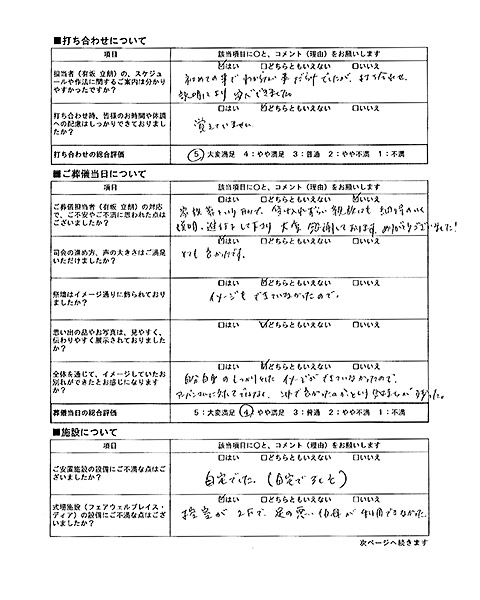 ■打ち合わせについて
項目 該当項目に○と、コメント（理由）をお願いします
担当者（有坂 立朗）の、スケジュールや作法に関するご案内は分かりやすかったですか？
☑はい □どちらともいえない □いいえ
初めての事でわからない事だらけでしたが、打ち合わせ、
説明により安心できました
打ち合わせ時、皆様のお時間や体調への配慮はしっかりできておりましたか？
□はい ☑どちらともいえない □いいえ
覚えていません
打ち合わせの総合評価 ⑤：大変満足 4：やや満足 3：普通 2：やや不満 1：不満
■ご葬儀当日について
項目 該当項目に○と、コメント（理由）をお願いします
ご葬儀担当者（有坂 立朗）の対応で、ご不安やご不満に思われた点はございましたか？
□はい □どちらともいえない ☑いいえ
家族葬という形で、 親族にも納得のいく
説明、進行をして下さり 大変感謝しております。ありがとうございました！
司会の進め方、声の大きさはご満足いただけましたか？
☑はい □どちらともいえない □いいえ
とても良かったです。
祭壇はイメージ通りに飾られておりましたか？
□はい ☑どちらともいえない □いいえ
イメージもできていなかったので。
思い出の品やお写真は、見やすく、伝わりやすく展示されておりましたか？
□はい ☑どちらともいえない □いいえ
全体を通じて、イメージしていたお別れができたとお感じになりますか？
□はい ☑どちらともいえない □いいえ
自分自身のしっかりとしたイメージができていなかったので、
葬儀当日の総合評価 5：大変満足 ④：やや満足 3：普通 2：やや不満 1：不満
■施設について
項目 該当項目に○と、コメント（理由）をお願いします
ご安置施設の設備にご不満な点はございましたか？
□はい □どちらともいえない □いいえ
自宅でした。（自宅でるすも）
式場施設（フェアウェルプレイス・ディア）の設備にご不満な点はございましたか？
☑はい □どちらともいえない □いいえ
控室が2Fで、足の悪い が利用できなかった。
次ページへ続きます